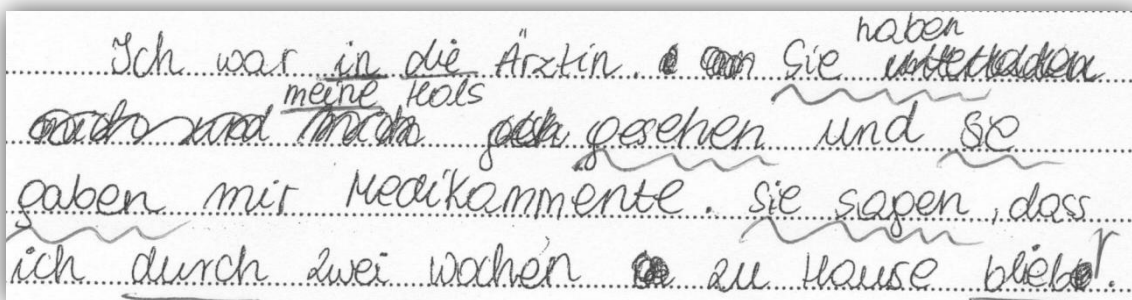 Ich war in die Ärztin. Sie haben
meine Hals gesehen und sie
gaben mir Medikammente. Sie sagen, dass
ich durch zwei wochen zu Hause blieb.